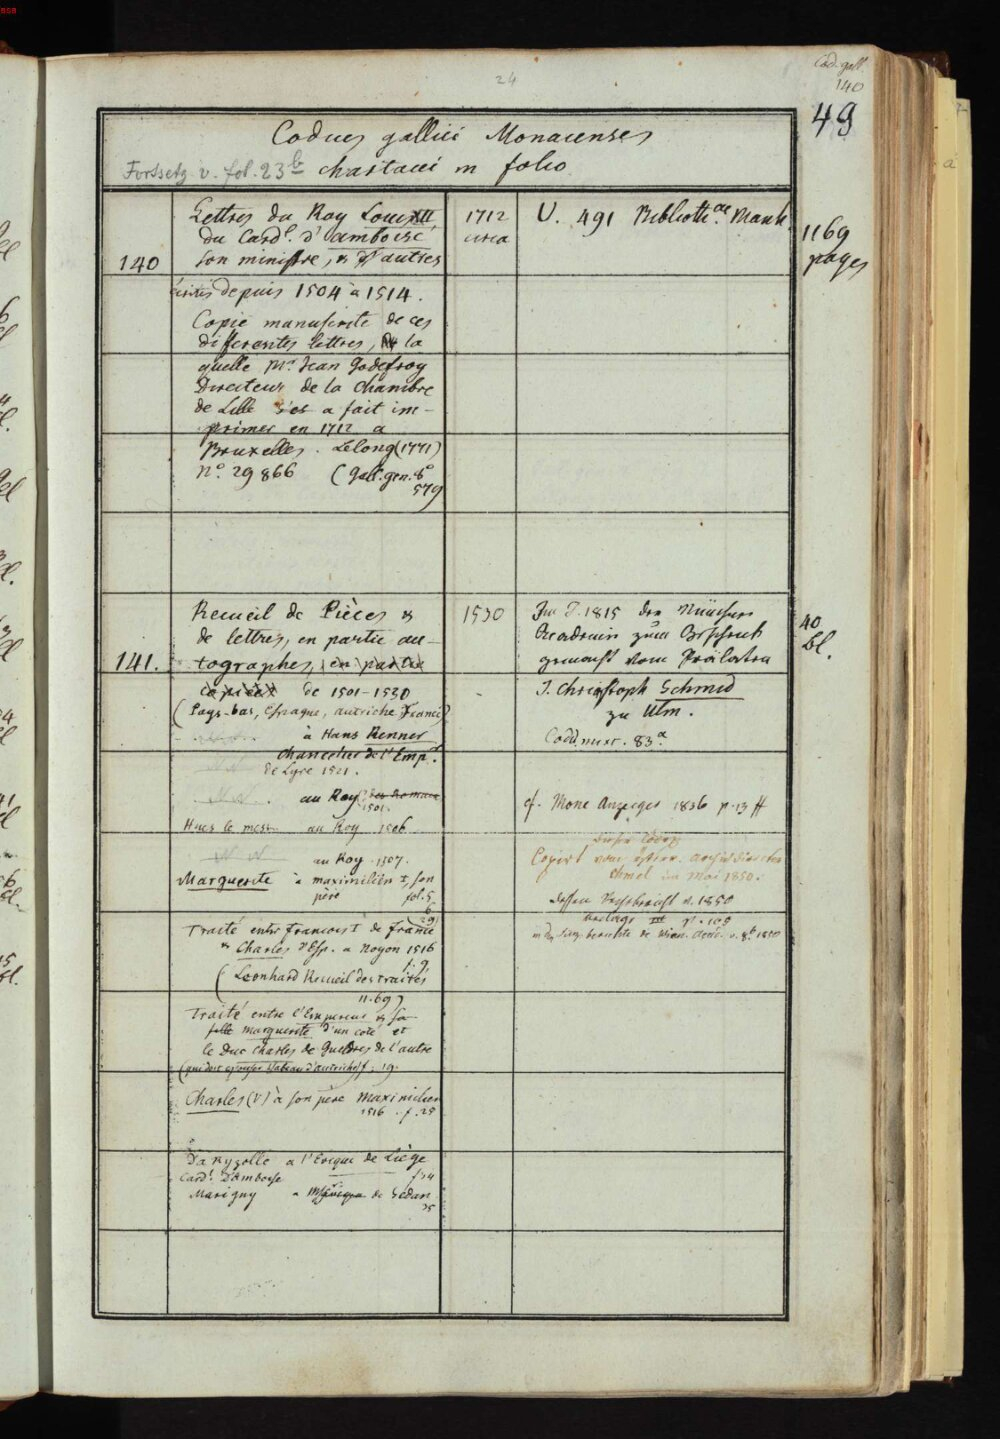 24
Cod. gall.
140
49
Codices gallici Monacenses
Fortsetz. v. fol. 23b chartacei in folio
140
Lettres du Roy Louis XII
du Cardl. d'amboise
son ministre, & d'autres
écrites depuis 1504 à 1514.
Copie manuscrite de ces
differentes lettres, la
quelle Mr. Jean Godefroy
Directeur de la Chambre
de Lille a fait im-
primer en 1712 a
Bruxelles. Lelong (1771)
No. 29866 (Gall. gen. 8o
579
1712
circa
V. 491 Biblioth.ae Manh.
1169
pages
141.
Recueil de Pièces &
de lettres, en partie au-
tographes, en partie
copiées de 1501-1530
(Pays-bas, Espagne, autriche, France)
à Hans Renner
Chancelier de l'Emp.r
de Lyre 1521.
au Roy des Romains
1501.
au Roy 1506
N N au Roy 1507.
Marguerite à maximilien I, son
père fol. 5
6
29)
Traité entre Francois I de france
& Charles d'Esp. a Noyon 1516
f. 9
(Leonhard Recueil des traités
II. 69)
Traité entre l'Empereur & sa
fille marguerite d'un coté et
le Duc Charles de Gueldres de l'autre
f. 19.
Charles (V) à son père Maximilien
1516 . f. 25
a l'Eveque de Liège
Card.l D'Amboise f 34
Marigny a de Sedan
35
1530
Im J. 1815 der Münchner
Academie zum Geschenk
gemacht vom Prälaten
J. Christoph Schmid
zu Ulm.
Codd. mixt. 83a.
cf. Mone Anzeiger 1836 p. 13 ff
Dieser Codex
Copirt vom österr. Archivdirector
Chmel im Mai 1850.
dessen v. 1850
p. 105
in d. Sitz. berichte de Wien. Acad. v. 8o 1850
40
Bl.